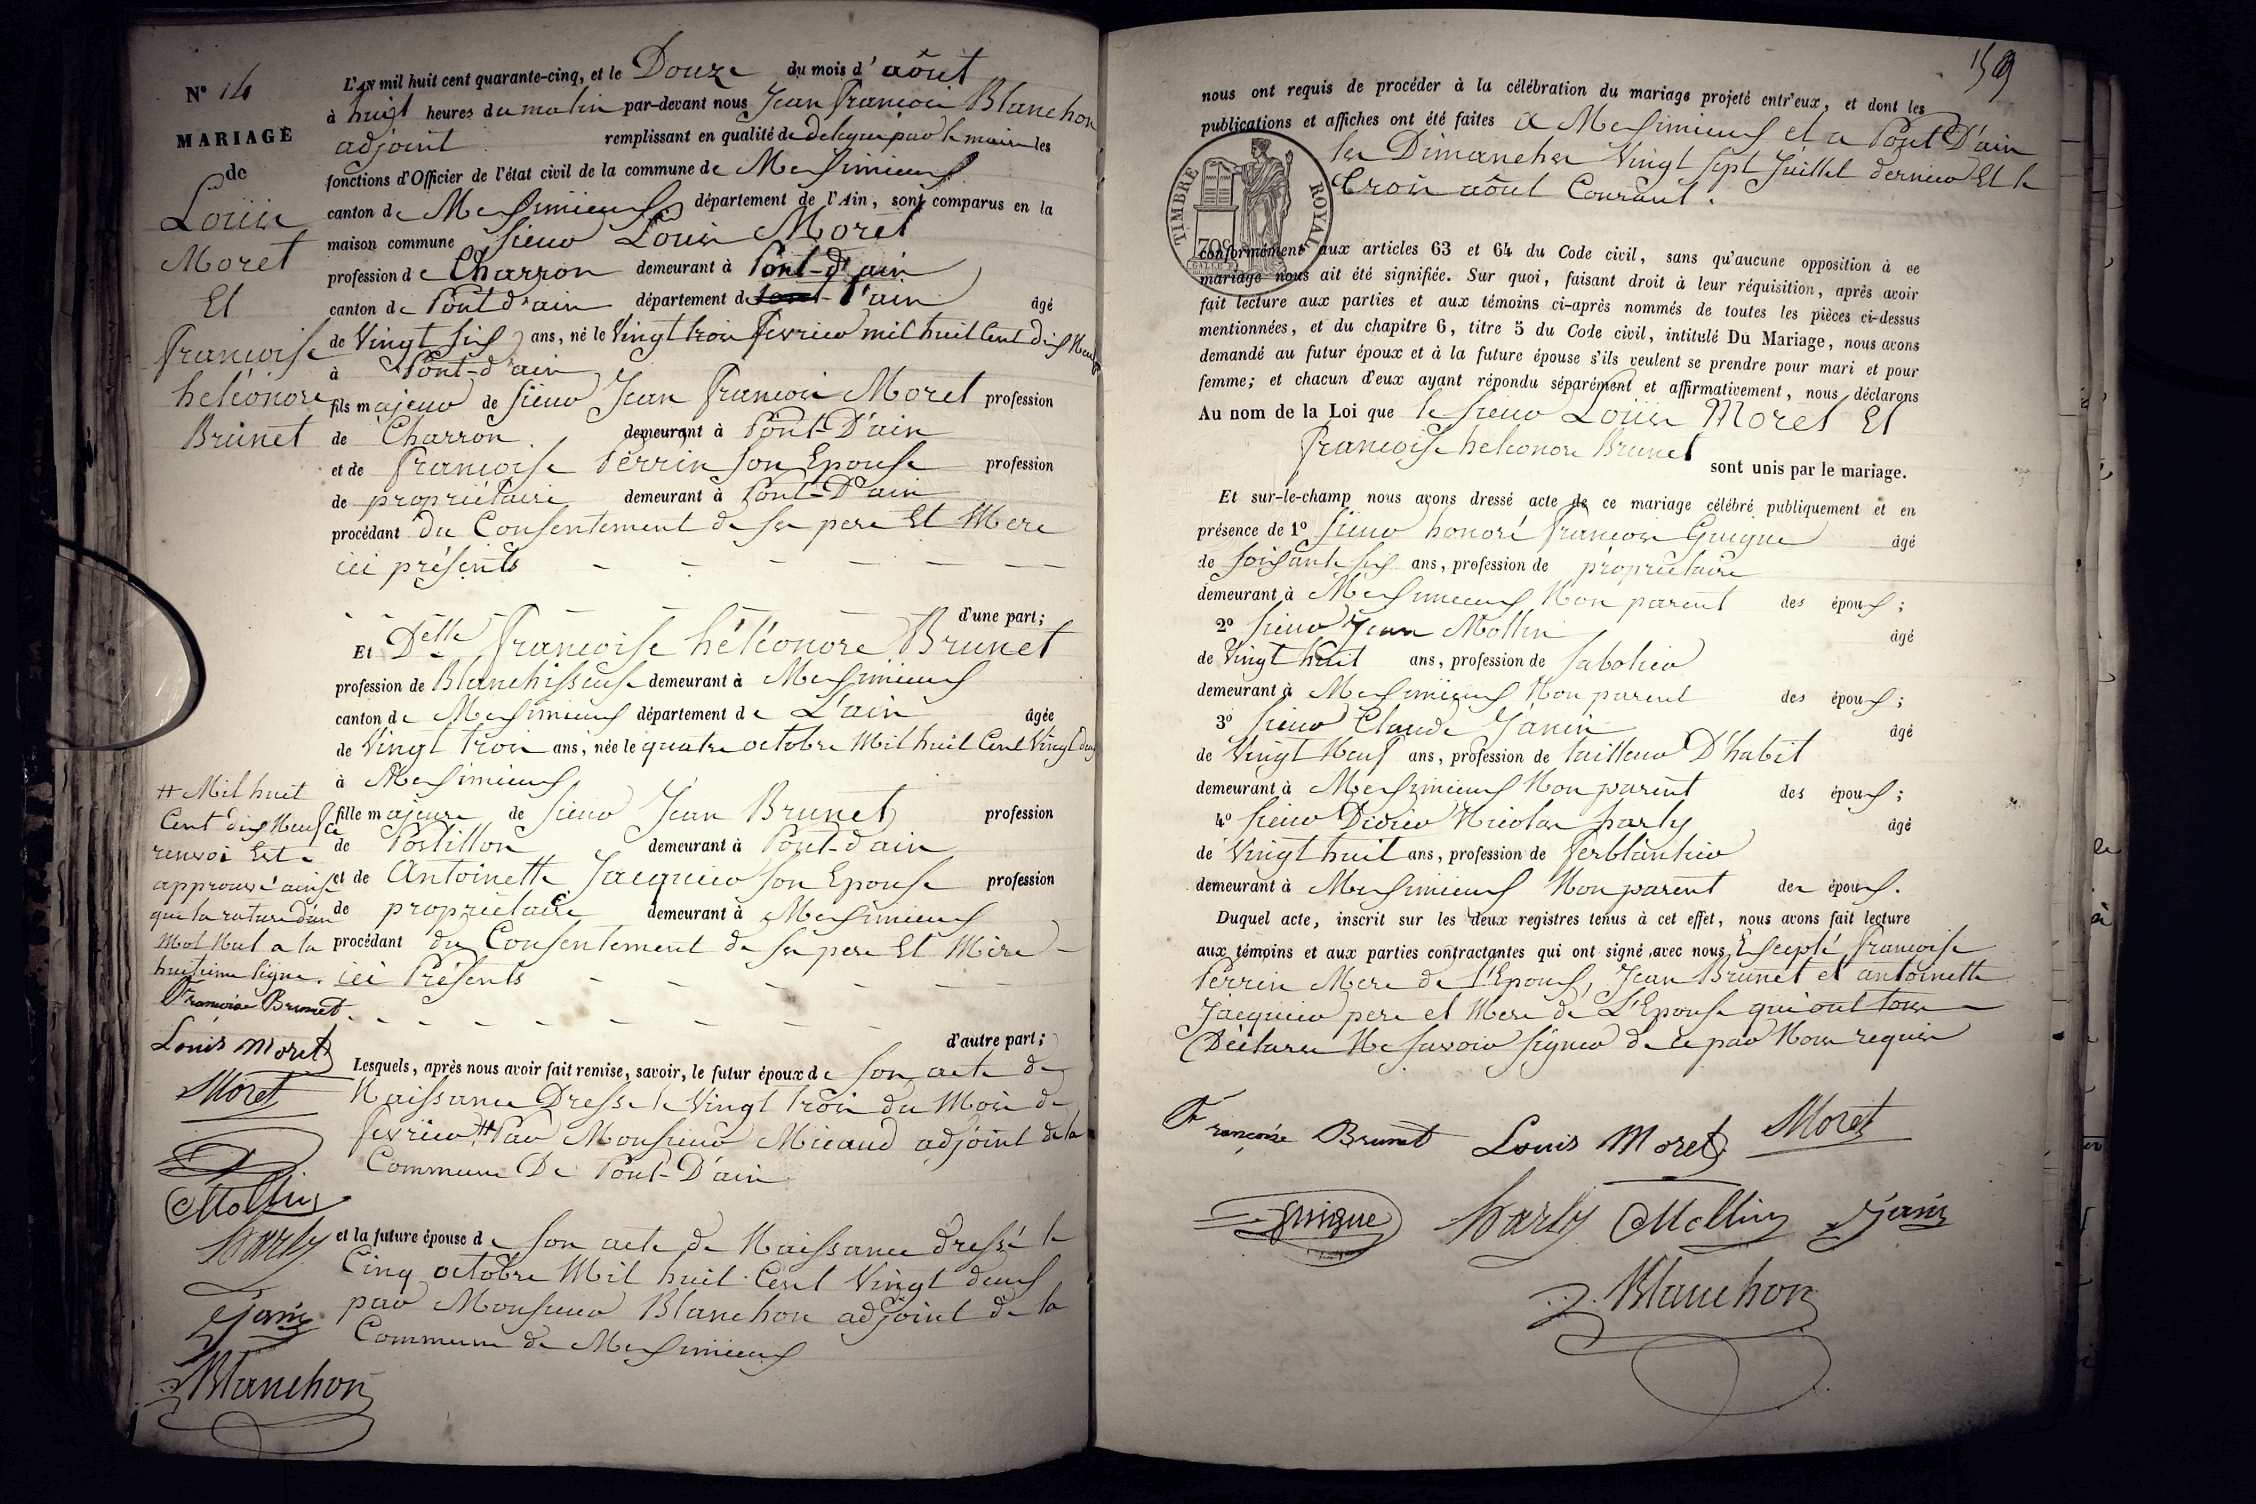 N° 14
MARIAGE
de
Loüis
Moret
Et
françoise
heléonore
Brunet
L'AN mil huit cent quarante-cinq, et le Douze du mois d'aôut
à huit heures du matin par-devant nous Jean francois Blanchon
adjoint remplissant en qualité de delegué par le maire les
fonctions d'Officier de l'état civil de la commune de Meximieux
canton de Meximieux département de l'Ain, sont comparus en la
maison commune sieur Louis Moret
profession de Charron demeurant à Pont-d'ain
canton de Pont d'ain département de l'ain âgé
de Vingt six ans, né le Vingt trois fevrier mil huit Cent dix Neuf
à Pont-d'ain
fils majeur de sieur Jean francois Moret profession
de Charron demeurant à Pont-D'ain
et de francoise Perrin son Epouse profession
de propriétaire demeurant à Pont-D'ain
procédant du Consentement de ses pere Et Mere
ici présents
d'une part;
Et Delle francoise héléonore Brunet
profession de Blanchisseuse demeurant à Meximieux
canton de Meximieux département de L'ain âgée
de Vingt trois ans, née le quatre octobre Mil huit Cent Vingt deux
à Meximieux
fille majeure de sieur Jean Brunet profession
de Postillon demeurant à Pont-d'ain
et de Antoinette Jacquier son Epouse profession
de propriétaire demeurant à Meximieux
procédant du Consentement de ses pere Et Mère
ici Présents
d'autre part;
Lesquels, après nous avoir fait remise, savoir, le futur époux de son acte de
Naissance Dressé le Vingt trois du Mois de
fevrier # Par Monsieur Micaud adjoint de la
Commune De Pont-D'ain
et la future épouse de son acte de Naissance dressé le
Cinq octobre Mil huit Cent Vingt deux
par Monsieur Blanchon adjoint de la
Commune de Meximieux
# Mil huit
Cent dix Neuf Ce
renvoi Est
approuvé ainsi
que la rature d'un
Mot Nul a la
huitieme ligne.
Françoise Brunet
Louis Moret
Moret
Mollin
harly
Janin
Blanchon
159
nous ont requis de procéder à la célébration du mariage projeté entr'eux, et dont les
publications et affiches ont été faites a Meximieux et a Pont D'ain
les Dimanches Vingt sept Juillet dernier Et le
trois aôut Courant.
TIMBRE ROYAL
70c
conformément aux articles 63 et 64 du Code civil, sans qu'aucune opposition à ce
mariage nous ait été signifiée. Sur quoi, faisant droit à leur réquisition, après avoir
fait lecture aux parties et aux témoins ci-après nommés de toutes les pièces ci-dessus
mentionnées, et du chapitre 6, titre 5 du Code civil, intitulé Du Mariage, nous avons
demandé au futur époux et à la future épouse s'ils veulent se prendre pour mari et pour
femme; et chacun d'eux ayant répondu séparément et affirmativement, nous déclarons
Au nom de la Loi que le sieur Loüis Moret Et
francoise heleonore Brunet
sont unis par le mariage.
Et sur-le-champ nous avons dressé acte de ce mariage célébré publiquement et en
présence de 1° sieur honoré francois Guigue âgé
de soixante six ans, profession de propriétaire
demeurant à Meximieux Non parent des époux;
2° sieur Jean Mollin âgé
de Vingt huit ans, profession de sabotier
demeurant à Meximieux Non parent des époux;
3° sieur Claude Janin âgé
de Vingt Neuf ans, profession de tailleur D'habit
demeurant à Meximieux Non parent des époux;
4° sieur Didier Nicolas harly âgé
de Vingt huit ans, profession de ferblantier
demeurant à Meximieux Non parent des époux.
Duquel acte, inscrit sur les deux registres tenus à cet effet, nous avons fait lecture
aux témoins et aux parties contractantes qui ont signé avec nous, Excepté francoise
Perrin Mere de l'Epoux, Jean Brunet et antoinette
Jacquier pere et Mere de L'Epouse qui ont tous
Déclarer Ne savoir signer de ce par Nous requis
Françoise Brunet Louis Moret Moret
Guigue harly Mollin Janin
Blanchon